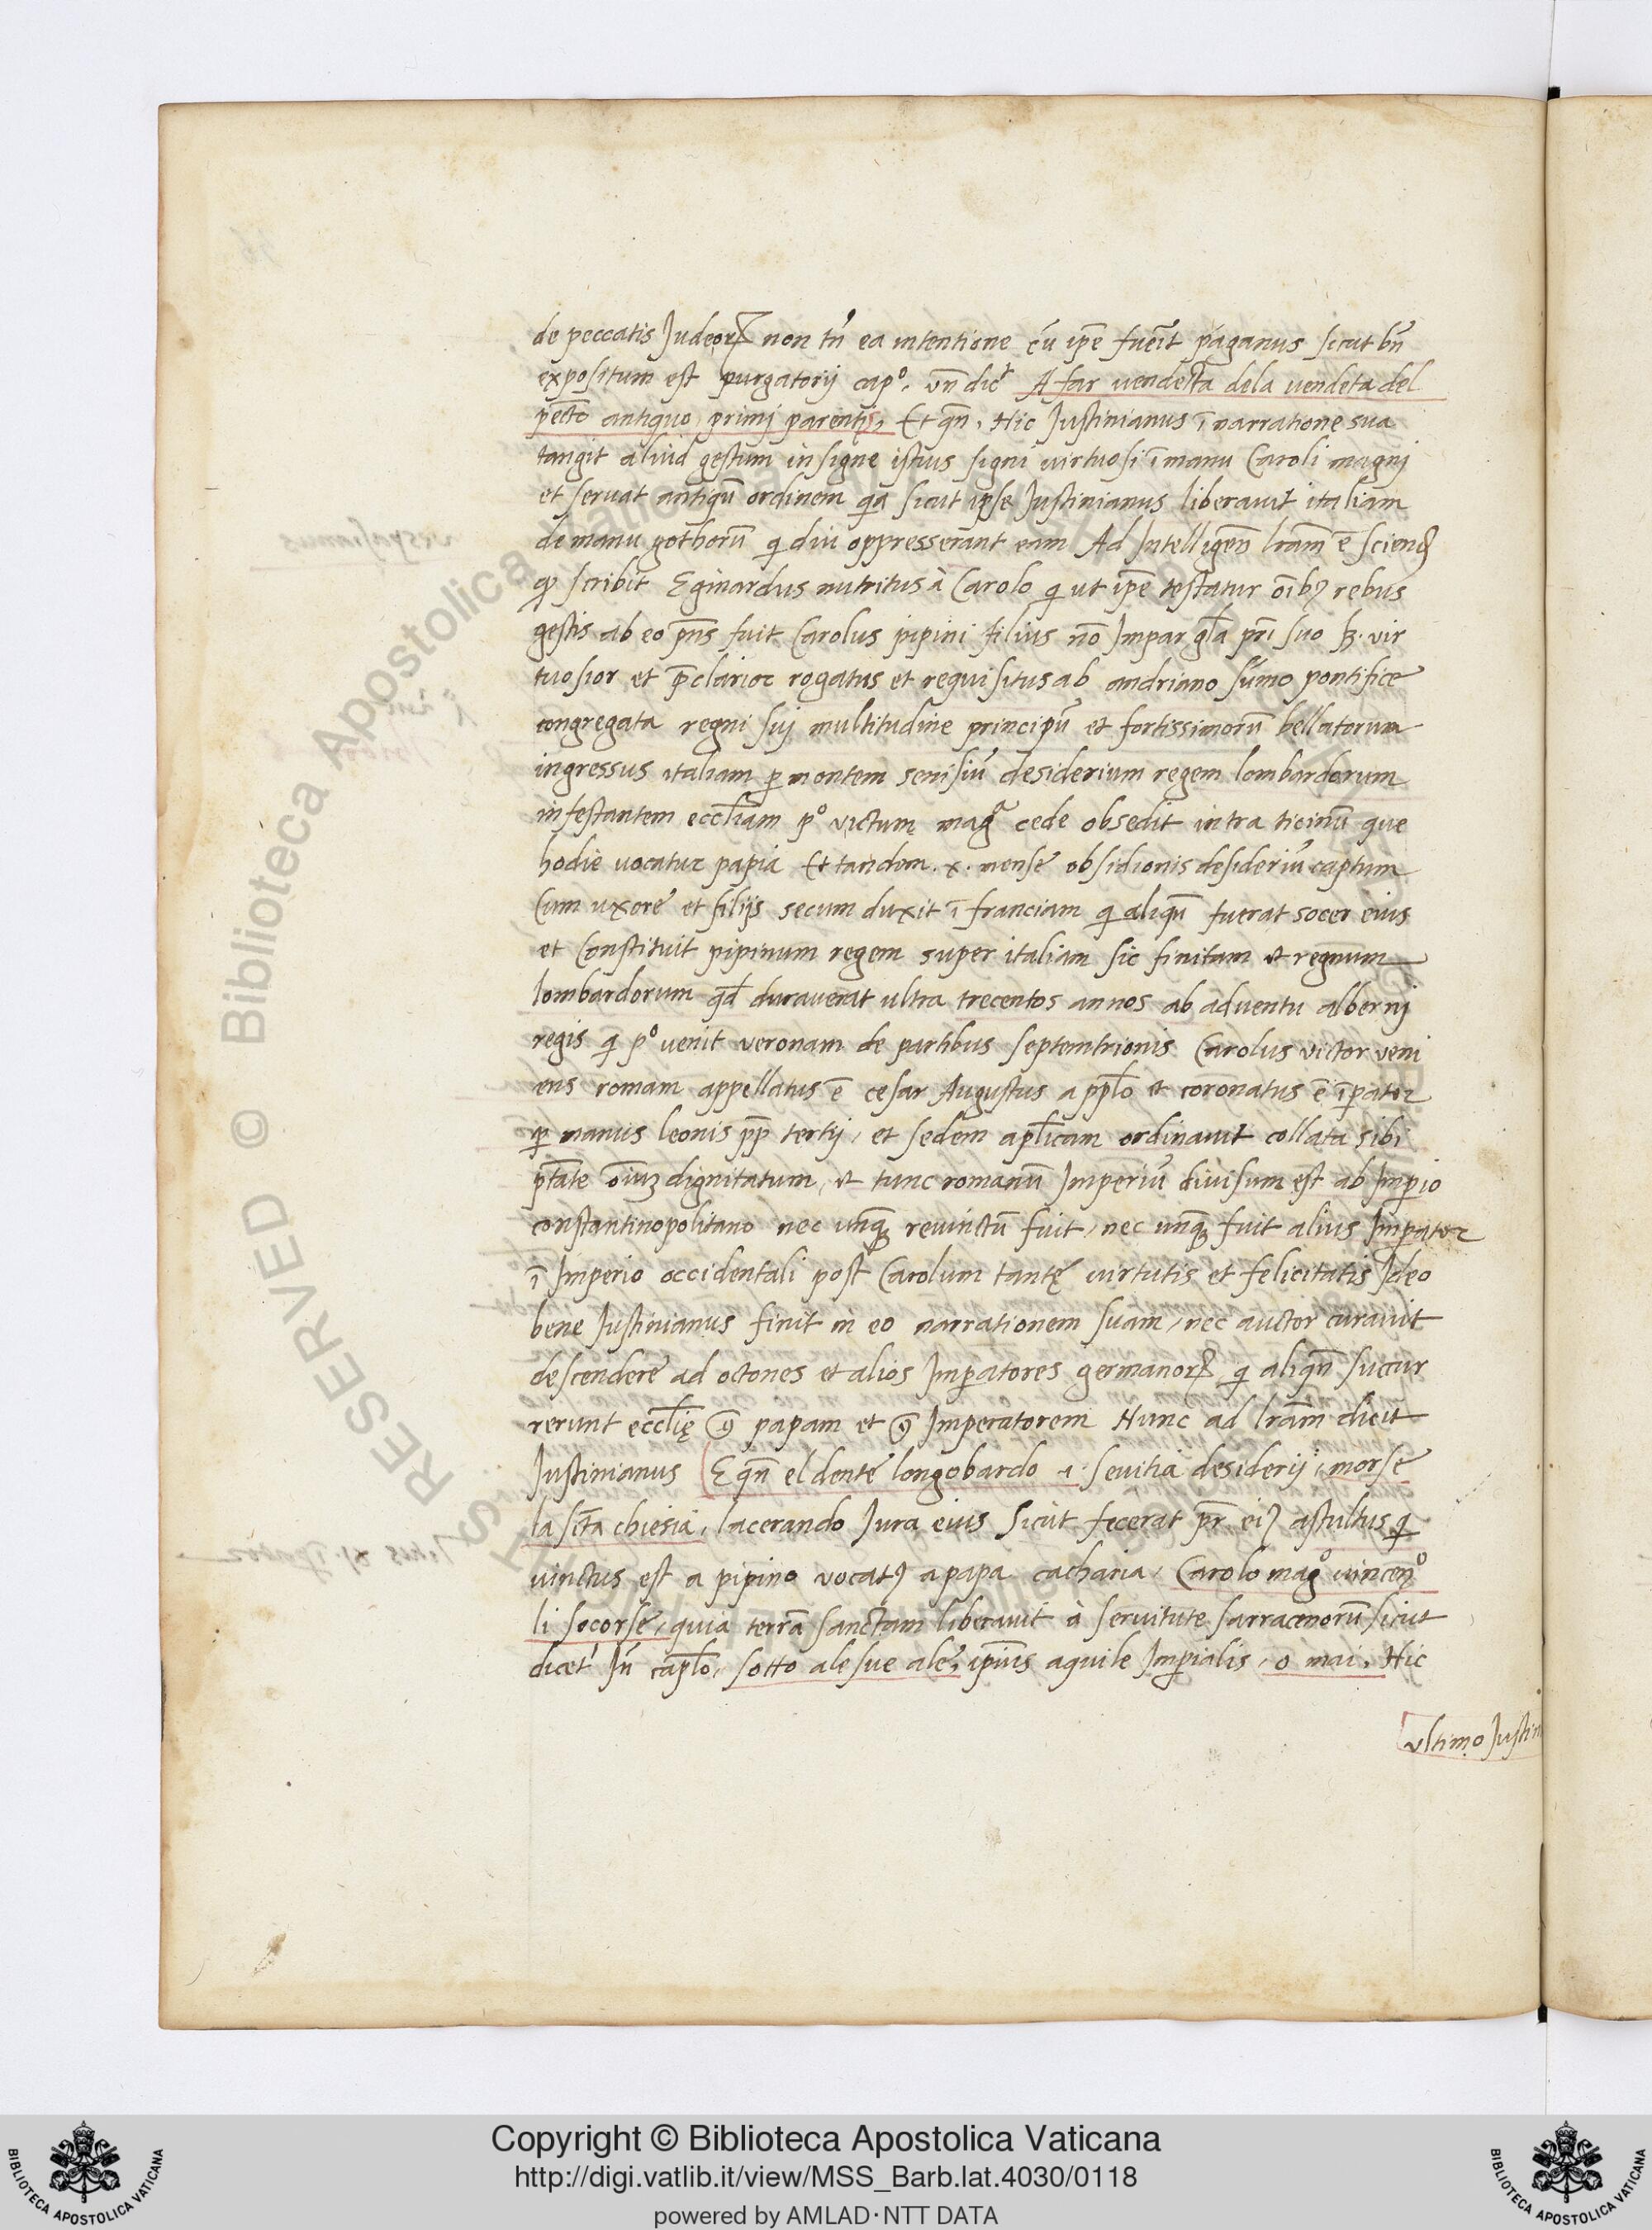 de peccatis Judeoꝝ non tñ ea intentione cũ ip̃e fuẽit paganus sicut bñ
expositum est purgatorij cap°. vñ dic͛ A far vendetta dela vendeta del
pect̃o antiquo primi parentis, Et qñ, Hic Justinianus ĩ narratione sua
tangit aliud gestum insigne istius signi virtuosi ĩ manu Caroli magnj
et seruat antiqũ ordinem qa sicut ipse Justinianus liberauit italiam
de manu gothorũ q diu oppresserant eam Ad Intelligeñ lr̃am ẽ sciend̃
ꝙ scribit Eginardus nutritus à Carolo q ut ip̃e testatur oĩbꝫ rebus
gestis ab eo pñs fuit Carolus pipini filius nõ Impar gl̃a pr̃i suo sꝫ. vir
tuosior et p̃clarior rogatus et requisitus ab andriano sũmo pontifice
congregata regni suj multitudine principũ et fortissimorũ bellatorum
ingressus italiam ꝑ montem senisiũ desiderium regem lombardorum
infestantem eccl̃iam p° victum magª cede obsedit intra ticinũ que
hodie uocatur papia Et tandem .x. mense obsidionis desideriũ captum
Cum uxore et filijs secum duxit ĩ franciam q aliqñ fuerat socer eius
et Constituit pipinum regem super italiam sic finitam et regnum
lombardorum qd̃ durauerat ultra trecentos annos ab aduentu albernj
regis q p° uenit veronam de partibus septemtrionis Carolus victor veni
ens romam appellatus ẽ cesar Augustus a ppl̃o et coronatus ẽ ĩpator
ꝑ manus leonis pp̃ tertij, et sedem apl̃icam ordinauit collata sibi
ptãte oĩuꝫ dignitatum, et tunc romanũ Imperiũ diuisum est ab Imp̃io
constantinopolitano nec unqꝫ reuinctũ fuit, nec unqꝫ fuit alius Imp̃ator
ĩ Imperio occidentali post Carolum tantę uirtutis et felicitatis Ideo
bene Justinianus finit in eo narrationem suam, nec auctor curauit
descendere ad octones et alios Imp̃atores germanoꝝ q aliqñ succur
rerunt eccl̃ię ꝯ̃ papam et ꝯ̃ Imperatorem Hunc ad lr̃am dicit
Justinianus E qñ el dente longobardo .i. seuitia desiderij, morse
la sc̃ta chiesia, lacerando Jura eius Sicut fecerat pr̃ eiꝰ astultus q
uinctus est a pipino vocatꝰ a papa cacharia, Carolo mag° uincen°
li socorse, quia terrã sanctam liberauit à seruitute sarracenorũ sicut
dicet' Iñ capl̃o, sotto ale sue ale, ip̃ius aquile Imp̃ialis, o mai, Hic
ultimo Justin
Copyright © Biblioteca Apostolica Vaticana
http://digi.vatlib.it/view/MSS_Barb.lat.4030/0118
powered by AMLAD·NTT DATA